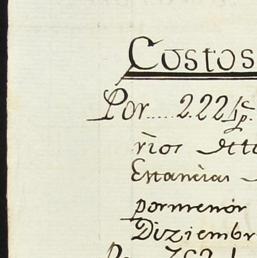 Costos
Por..... 2.221 p.
rios
Estancias
pormenor
Diziembr